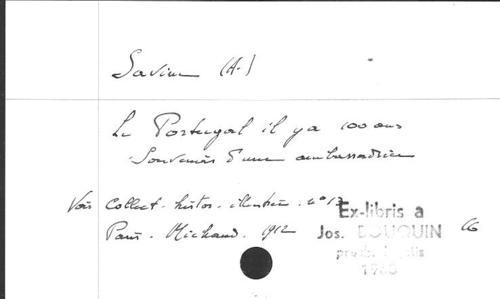 Savine (A.)
Le Portugal il y a 100 ans
Souvenirs d'une ambassadrice
Voir Collect. histor. illustrée. n° 17
Paris. Michaud. 1912
Ex-libris a
Jos. BOUQUIN